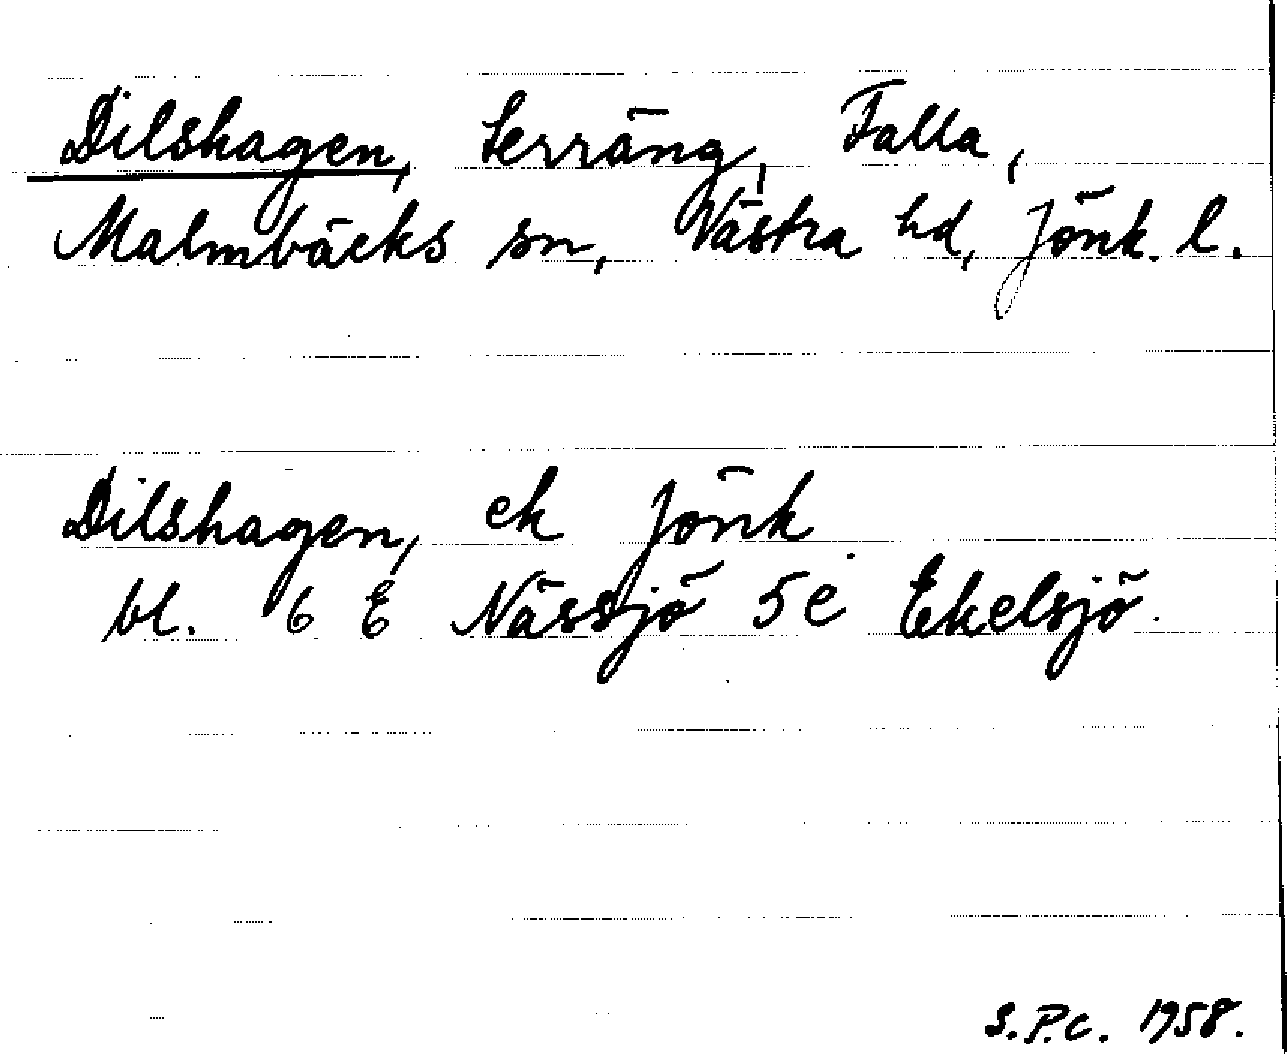 Dilshagen, Terräng, Falla,
Malmbäcks sn, Västra hd, Jönk. l.
Dilshagen, ek Jönk
bl. 6 E Nässjö 5e Ekelsjö.
S.P.C. 1958.